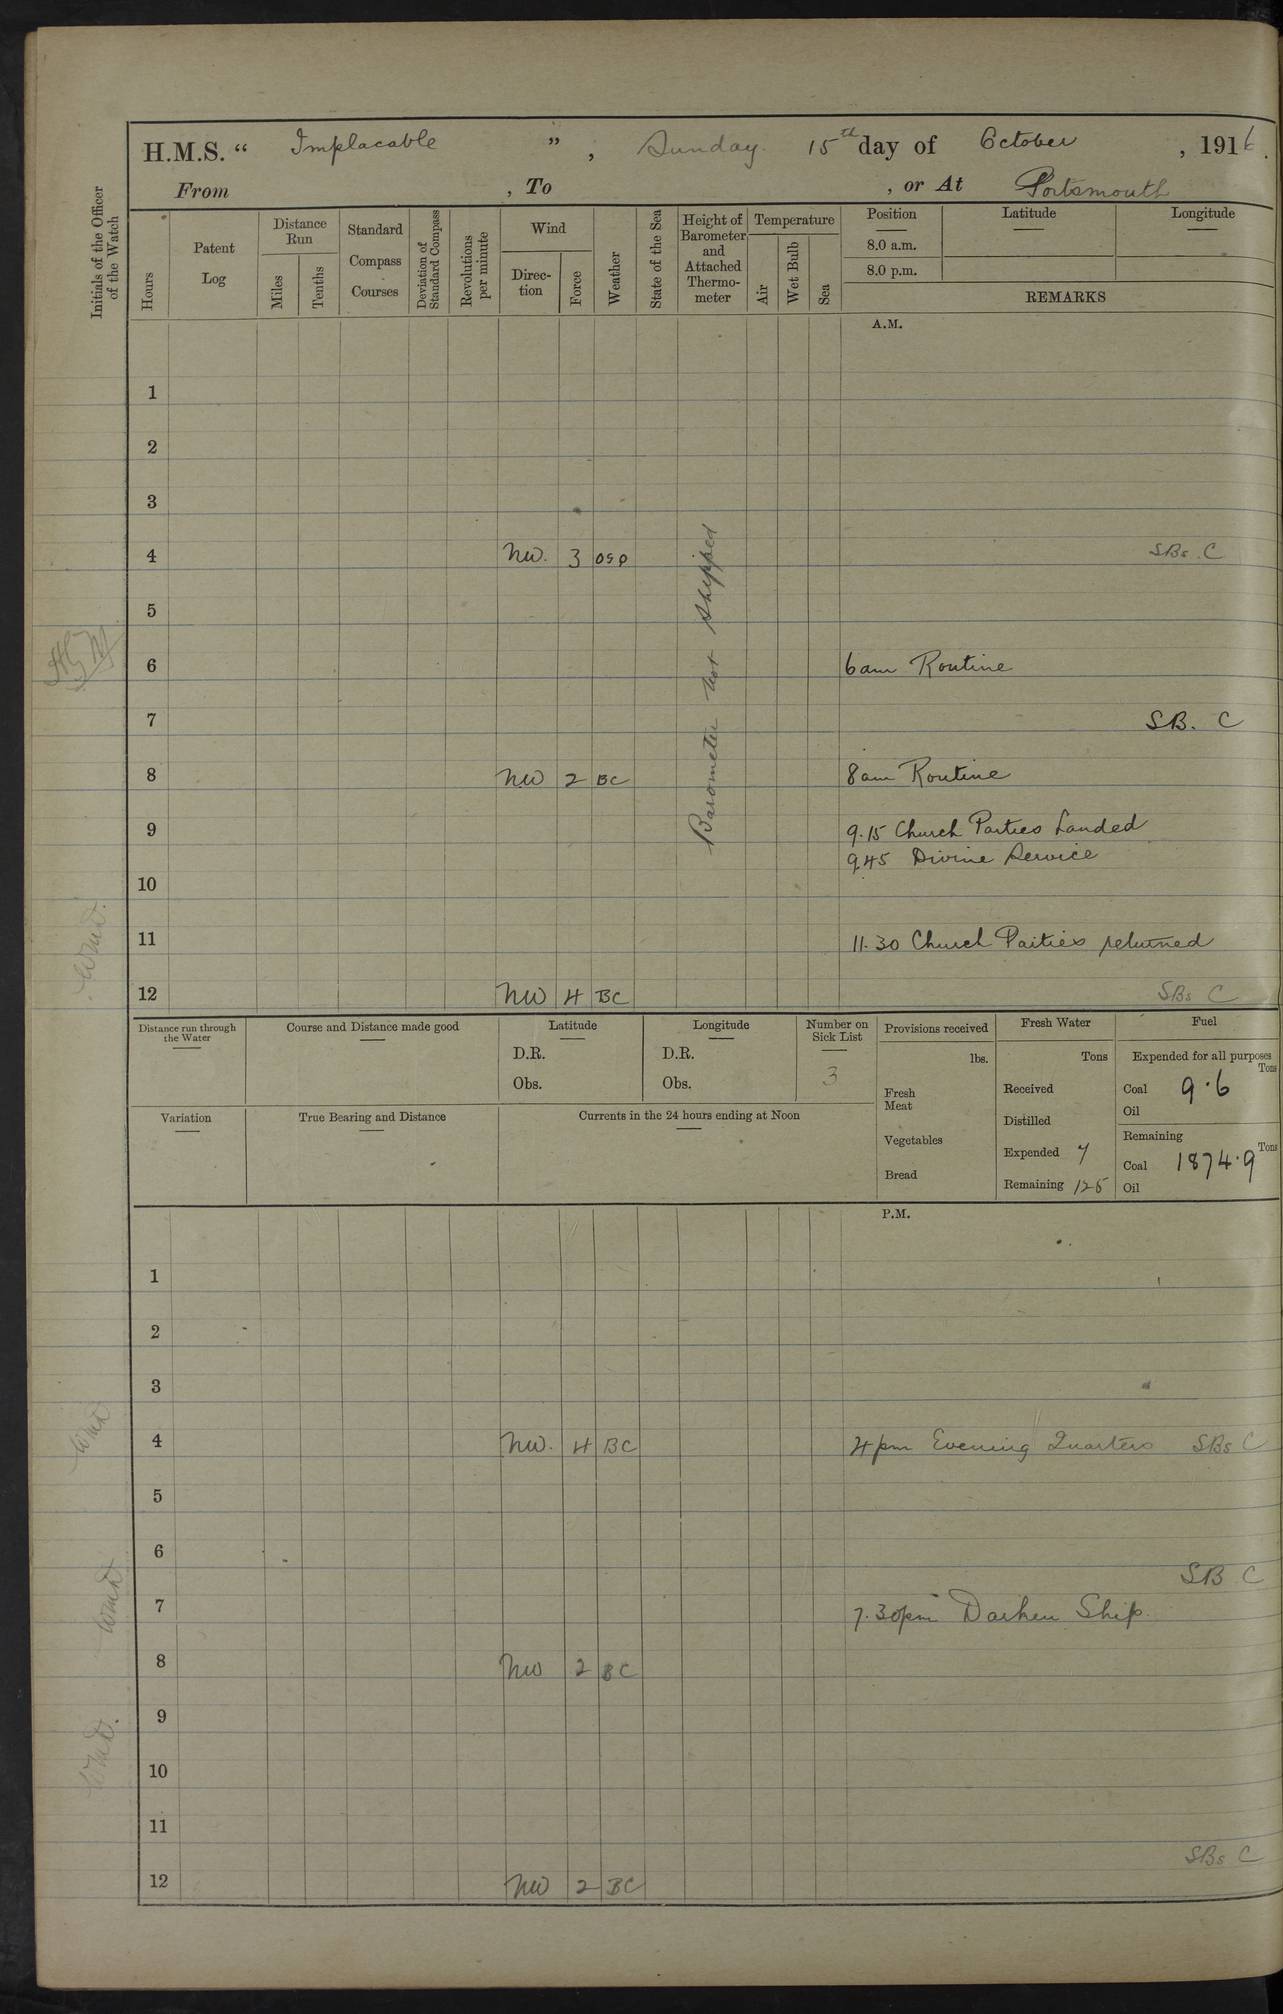 H.M.S. “ Implacable ” , Sunday. 15th day of October , 1916.
From , To , or At Portsmouth
Initials of the Officer of the Watch
Hours
Patent Log
Distance Run
Miles
Tenths
Standard Compass Courses
Deviation of Standard Compass
Revolutions per minute
Wind
Direction
Force
Weather
State of the Sea
Height of Barometer and Attached Thermometer
Temperature
Air
Wet Bulb
Sea
Position Latitude Longitude
8.0 a.m.
8.0 p.m.
REMARKS
A.M.
1
2
3
4 NW. 3 SBs. C
5
6 6am Routine
7 SB. C
8 NW 2 BC 8am Routine
9 9.15 Church Parties Landed
9.45 Divine Service
10
11 11.30 Church Parties returned
12 NW 4 BC SBs C
Barometer not shipped
Distance run through the Water
Course and Distance made good
Latitude
D.R.
Obs.
Longitude
D.R.
Obs.
Number on Sick List
3
Variation
True Bearing and Distance
Currents in the 24 hours ending at Noon
Provisions received
lbs.
Fresh Meat
Vegetables
Bread
Fresh Water
Tons
Received
Distilled
Expended 7
Remaining 125
Fuel
Expended for all purposes
Tons
Coal 9.6
Oil
Remaining
Tons
Coal 1874.9
Oil
P.M.
1
2
3
4 NW. 4 BC 4pm Evening Quarters SBs C
5
6
SB C
7 7.30pm Darken Ship.
8 NW 2 BC
9
10
11
SBs C
12 NW 2 BC